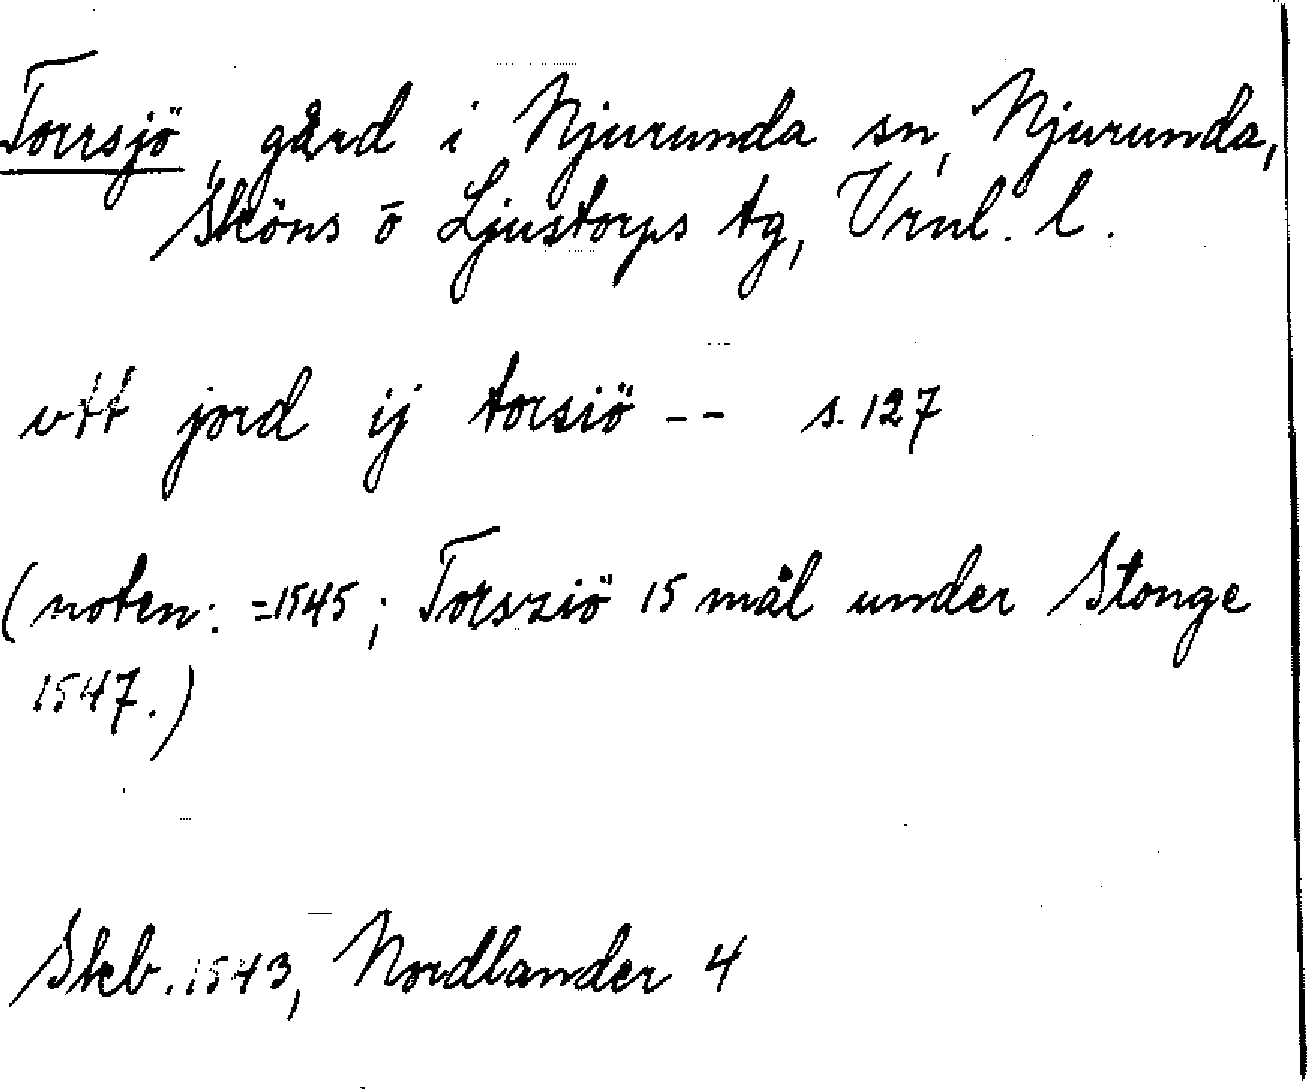 Torrsjö, gård i Njurunda sn, Njurunda,
Sköns o Ljustorps tg, Vrnl. l.
vtt jord ij torsiö -- s. 127
(noten: =1545; Torsziö 15 mål under Stonge
1547.)
Skb. 1543, Nordlander 4